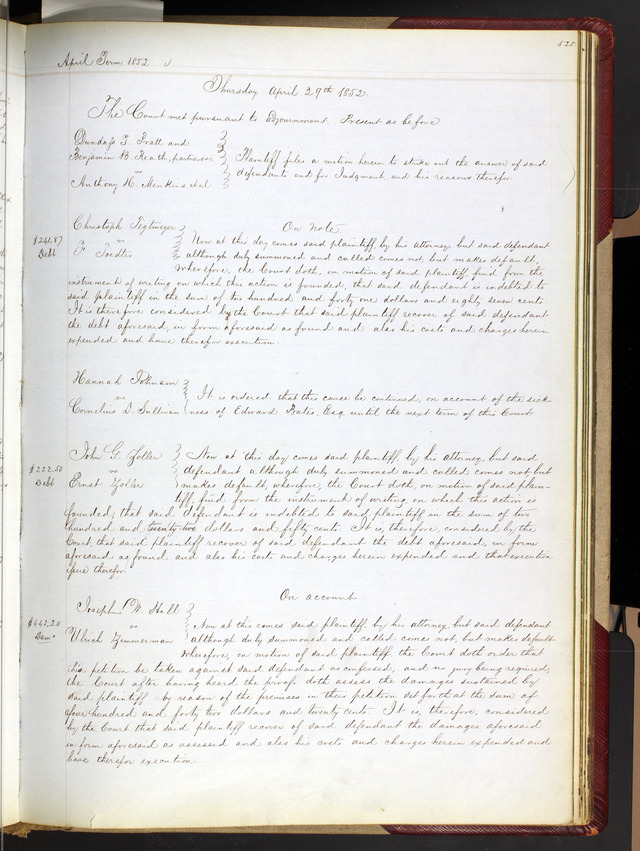 525
April Term 1852
Thursday April 29th 1852.
The Court met pursuant to adjournment. Present as before
Dundass F. Pratt and
Benjamin B. Heath, partners &c
vs
Anthony H. Menkins et al
Plaintiff files a motion herein to strike out the answer of said
defendants and for Judgment and his reasons therefor.
Christoph Tegtmeyer
vs
F. Toedter
$241,87
Debt
On note.
Now at this day comes said plaintiff, by his attorney, but said defendant
although duly summoned and called comes not, but makes default,
Wherefore, the Court doth, on motion of said plaintiff, find from the
instrument of writing on which this action is founded, that said defendant is indebted to
said plaintiff in the sum of two hundred and forty one dollars and eighty seven cents
It is therefore considered by the Court that said plaintiff recover of said defendant
the debt aforesaid, in form aforesaid as found and also his costs and charges herein
expended and have therefor execution.
Hannah Johnson
vs
Cornelius D Sullivan
It is ordered that this cause be continued, on account of the sick-
ness of Edward Bates, Esq. until the next term of this Court
John G. Zoller
vs
Ernst Zoller
$222.50
Debt
Now at this day comes said plaintiff by his attorney, but said
defendant although duly summoned and called comes not, but
makes default, wherefore, the Court doth, on motion of said plain-
tiff, find from the instrument of writing, on which this action is
founded, that said defendant is indebted to said plaintiff in the sum of two
hundred and twenty two dollars and fifty cents It is, therefore, considered by the
Court, that said plaintiff recover of said defendant the debt aforesaid, in form
aforesaid as found and also his costs and charges herein expended and that execution
issue therefor.
On account
Josephus W. Hall
vs
Ulrich Zimmerman
$442,20
Dam.
Now at this comes said plaintiff by his attorney, but said defendant
although duly summoned and called comes not, but makes default
Wherefore, on motion of said plaintiff the Court doth order that
his petition be taken against said defendant as confessed, and no jury being required,
the Court after having heard the proof doth assess the damages sustained by
said plaintiff by reason of the premises in their petition set forth at the sum of
four hundred and forty two dollars and twenty cents It is, therefore, considered
by the Court that said plaintiff recover of said defendant the damages aforesaid
in form aforesaid as assessed and also his costs and charges herein expended and
have therefor execution.